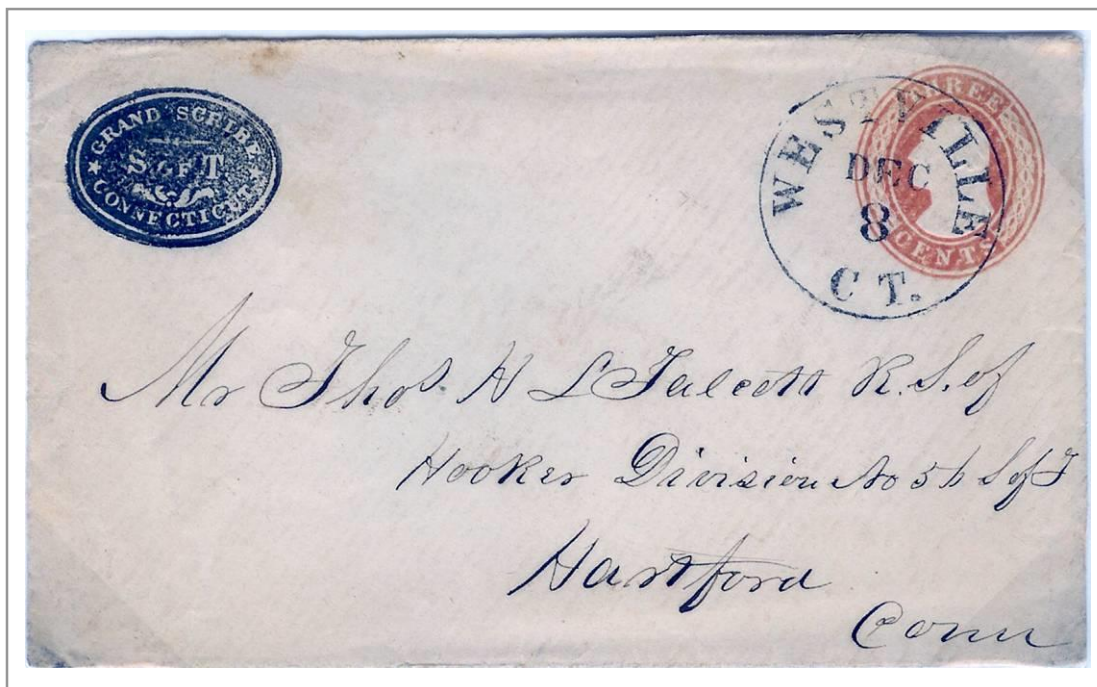 GRAND SCRIBE
S OF T.
CONNECTICUT
THREE
CENTS
WESTVILLE
DEC
8
CT.
Mr Thos. H L Talcott R.S. of
Hooker Division No 56 S of T
Hartford
Conn